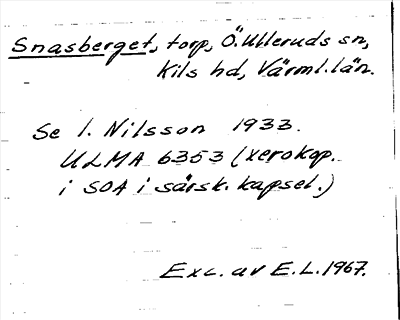 Snasberget, torp, Ö. Ulleruds sn,
Kils hd, Värml. län.
Se I. Nilsson 1933.
ULMA 6353 (xerokop.
i SOA i särsk. kapsel.)
Exc. av E.L. 1967.